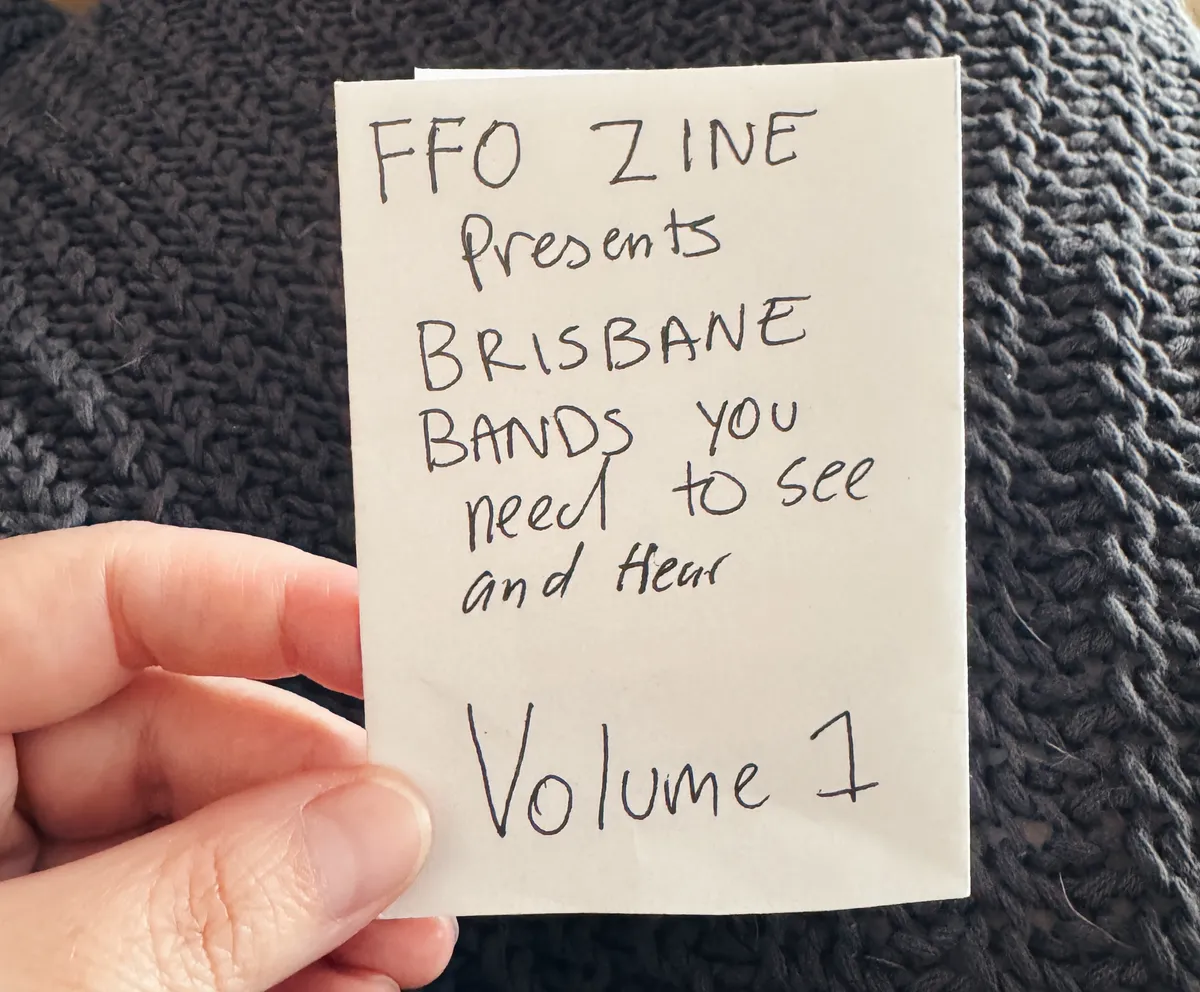 FFO ZINE
Presents
BRISBANE
BANDS YOU
need to see
and Hear
Volume 1